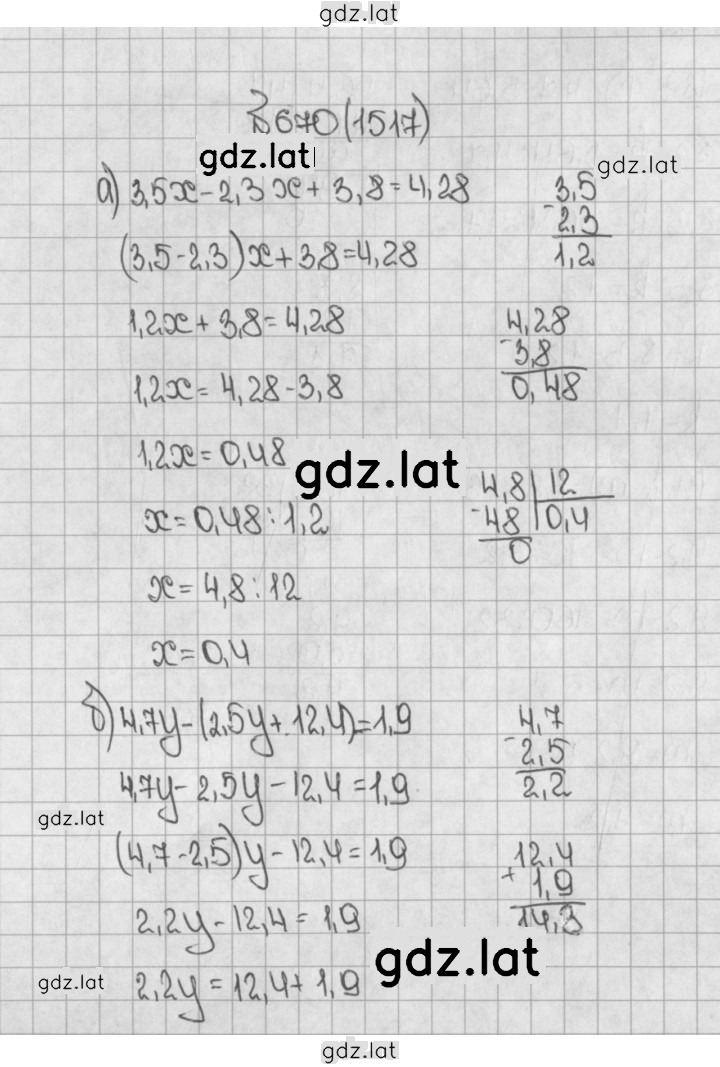 gdz.lat
№ 670 (1517)
gdz.lat
gdz.lat
а) 3,5x - 2,3x + 3,8 = 4,28
3,5
- 2,3
1,2
(3,5 - 2,3)x + 3,8 = 4,28
1,2x + 3,8 = 4,28
4,28
- 3,8
0,48
1,2x = 4,28 - 3,8
1,2x = 0,48
gdz.lat
4,8 | 12
- 48 | 0,4
0
x = 0,48 : 1,2
x = 4,8 : 12
x = 0,4
б) 4,7y - (2,5y + 12,4) = 1,9
4,7
- 2,5
2,2
4,7y - 2,5y - 12,4 = 1,9
gdz.lat
(4,7 - 2,5)y - 12,4 = 1,9
12,4
+ 1,9
14,3
2,2y - 12,4 = 1,9
gdz.lat
gdz.lat
2,2y = 12,4 + 1,9
gdz.lat